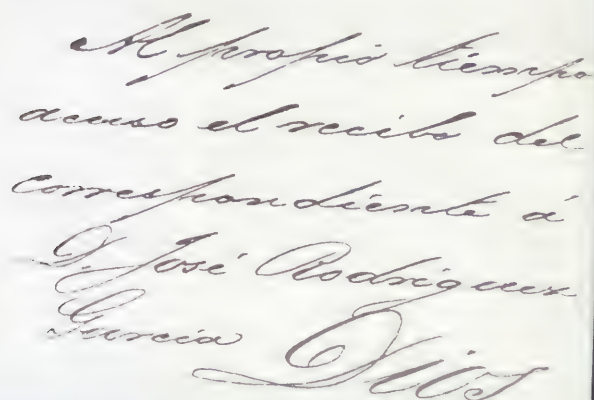 Al propio tiempo
acuso el recibo del
correspondiente á
D. José Rodriguez
Garcia Dios